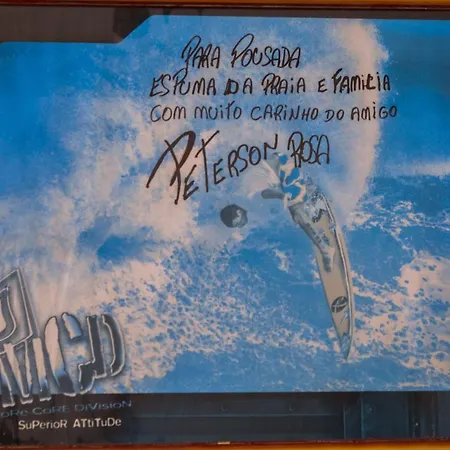 PARA POUSADA
ESPUMA DA PRAIA E FAMILIA
COM MUITO CARINHO DO AMIGO
PETERSON ROSA
CORE DIVISION
SUPERIOR ATTITUDE